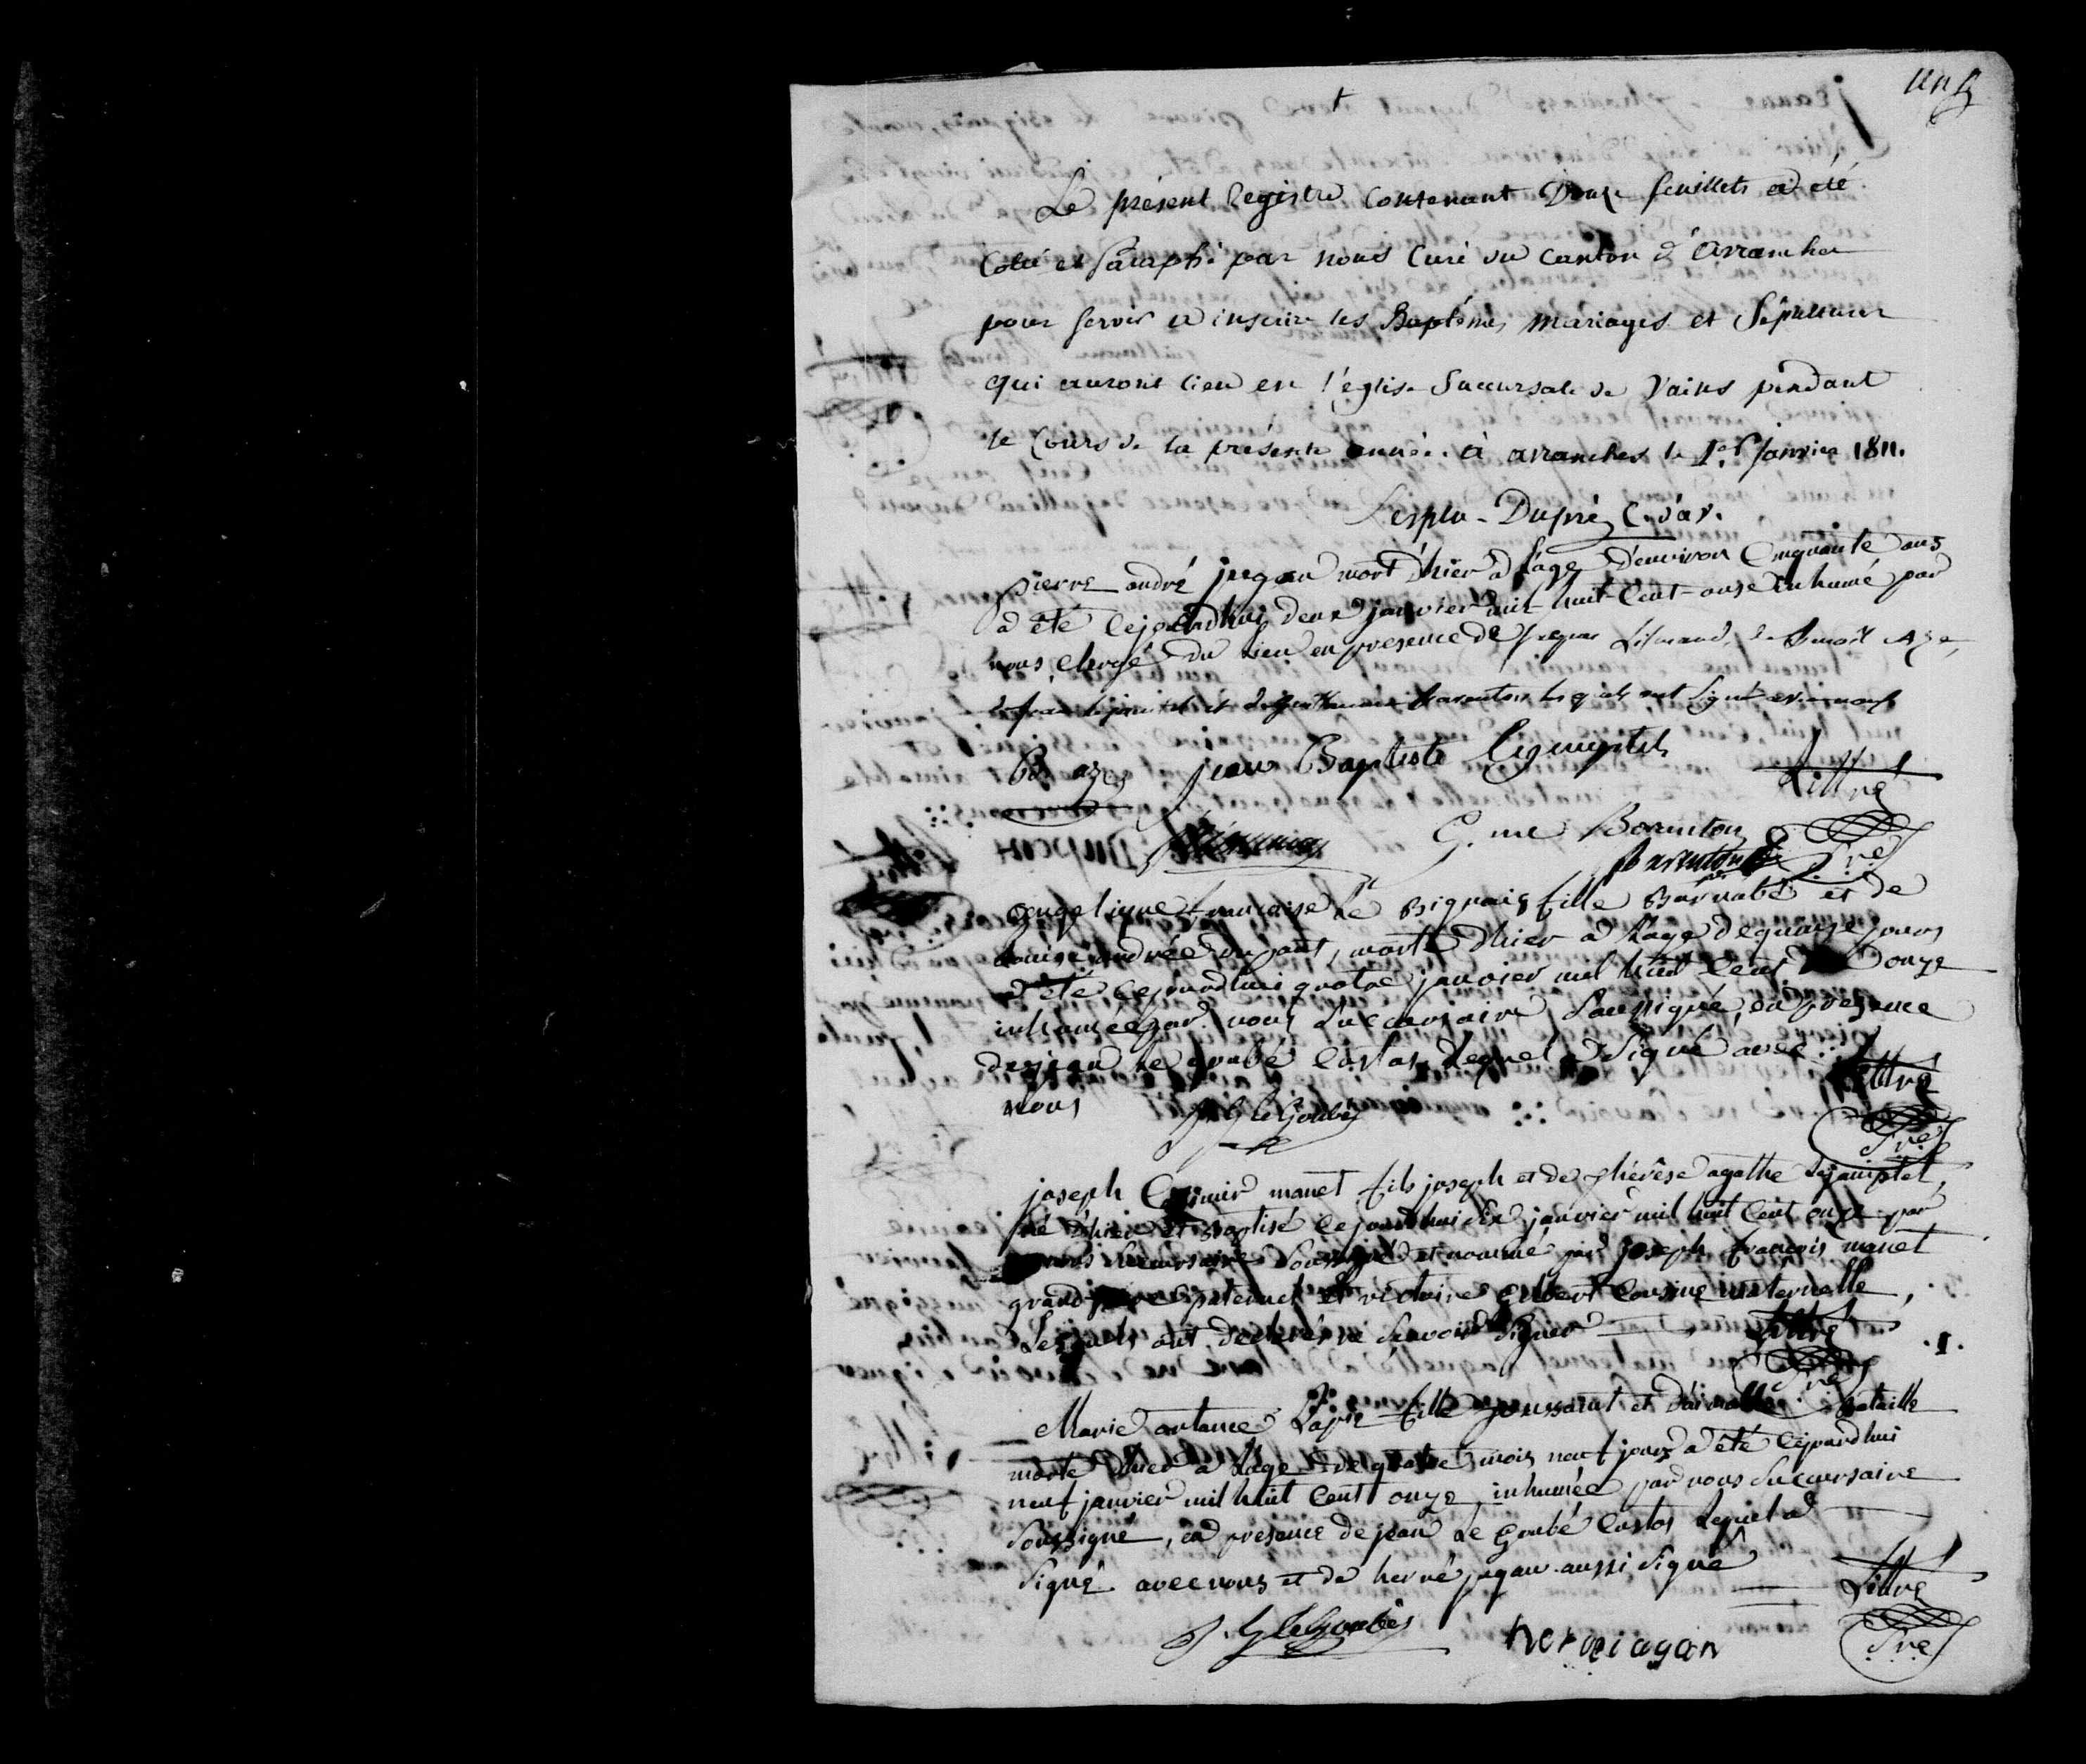 un
Le présent Registre contenant Douze feuillets a été
Coté et Paraphé par nous Curé du Canton d'Avranches
pour servir a inscrire les Baptêmes Mariages et Sépultures
qui auront lieu en l'église Succursale de Vains pendant
le Cours de la présente année. à avranches le 1er Janvier 1811.
Dupré C. d'av.
pierre andré jugan mort d'hier a l'age d'environ Cinquante ans
a été cejourdhuy deux janvier mil huit Cent onze inhumé par
nous, clergé du lieu en presence de
lesquels ont Signé avec nous
jean Baptiste Lejamptel Littré
G. me Barenton
Barenton Pre
angelique francoise Le Bignais fille Barnabé et de
Louise andrée dupont, morte d'hier a l'age de quinze jours
a été cejourdhui quatre janvier mil huit Cent onze
inhumée par nous Succursaire Soussigné, en presence
de jean Le goubé Custos Lequel a Signé avec
nous J. G. Le Goubey Littré
Pre
joseph Casimir manet fils joseph et de thérèse agathe Lejamptel,
né d'hier et Baptisé cejourdhui dix janvier mil huit Cent onze par
nous Succursaire Soussigné et nommé par joseph françois manet
grand père paternel et victoire Cousine maternelle,
Lesquels ont declaré ne Scavoir Signer Littré
.1.
Pre
Marie ortance fille toussaint et bataille
morte d'hier a l'age de quatre mois neuf jours a été cejourdhui
neuf janvier mil huit Cent onze inhumée par nous Succursaire
Soussigné, en presence de jean Le goubé Custos Lequel a
Signé avec nous et de hervé jugan aussi Signé Littré
J. G. Le Goubey herve iagan Pre